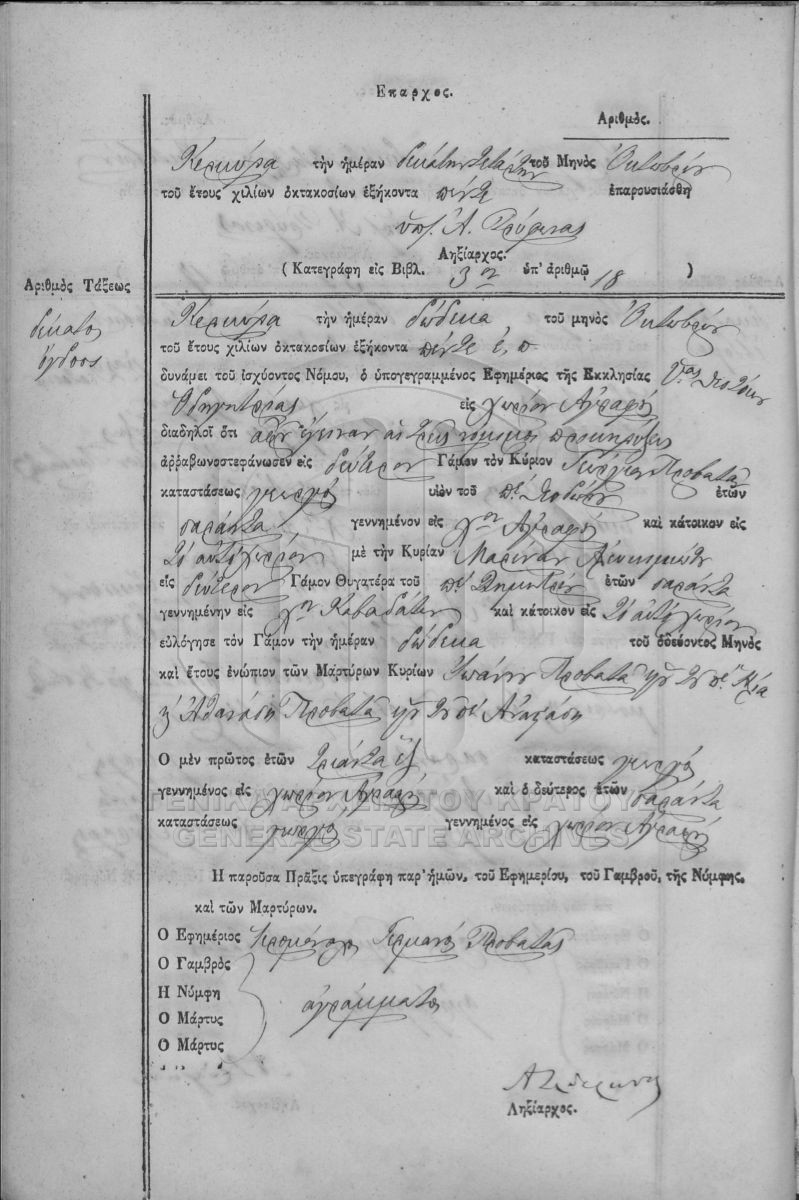 Επαρχος.
Αριθμὸς.
Κερκύρα τὴν ἡμέραν δεκάτην τετάρτην τοῦ Μηνὸς Ὀκτωβρίου
τοῦ ἔτους χιλίων ὀκτακοσίων ἑξήκοντα πέντε ἐπαρουσιάσθη
ὑπ. Α.
Ληξίαρχος.
( Κατεγράφη εἰς Βιβλ. 3ον ὑπ' ἀριθμῷ 18 )
Αριθμὸς Τάξεως
δέκατος
όγδοος
Κερκύρα τὴν ἡμέραν δώδεκα τοῦ μηνὸς Ὀκτωβρίου
τοῦ ἔτους χιλίων ὀκτακοσίων ἑξήκοντα πέντε ε. π
δυνάμει τοῦ ἰσχύοντος Νόμου, ὁ ὑπογεγραμμένος Εφημέριος τῆς Εκκλησίας Υας Θεοτόκου
Οδηγητρίας εἰς χωρίον Αγραφοί
διαδηλοῖ ὅτι ἀφοῦ ἔγειναν αἱ τρεῖς νόμιμοι προκηρύξεις
ἀῤῥαβωνοστεφάνωσεν εἰς δεύτερον Γάμον τὸν Κύριον Γεώργιον Προβατᾶ
καταστάσεως γεωργός υἱὸν τοῦ πτ Θεοδώρου ἐτῶν
σαράντα γεννημένον εἰς χον Αγραφοί καὶ κάτοικον εἰς
το αυτό χωρίον μὲ τὴν Κυρίαν Μαρίναν
εἰς δεύτερον Γάμον Θυγατέρα τοῦ πτ Δημητρίου ἐτῶν σαράντα
γεννημένην εἰς χον Καβαδάτες καὶ κάτοικον εἰς το αυτό χωρίον
εὐλόγησε τὸν Γάμον τὴν ἡμέραν δώδεκα τοῦ ὁδεύοντος Μηνὸς
καὶ ἔτους ἐνώπιον τῶν Μαρτύρων Κυρίων Ιωάννη Προβατᾶ υἱοῦ του πτ
κ Αθανάση Προβατᾶ υἱοῦ του πτ Αναστάση
Ο μὲν πρῶτος ἐτῶν τριάντα έξ καταστάσεως γεωργός
γεννημένος εἰς χωρίον Αγραφοί καὶ ὁ δεύτερος ἐτῶν σαράντα
καταστάσεως γεωργός γεννημένος εἰς χωρίον Αγραφοί
Η παροῦσα Πρᾶξις ὑπεγράφη παρ' ἡμῶν, τοῦ Εφημερίου, τοῦ Γαμβροῦ, τῆς Νύμφης,
καὶ τῶν Μαρτύρων.
Ο Εφημέριος Ιερομόναχος Γερμανός Προβατᾶς
Ο Γαμβρὸς
Η Νύμφη
αγράμματοι
Ο Μάρτυς
Ο Μάρτυς
Ληξίαρχος.
ΓΕΝΙΚΑ ΑΡΧΕΙΑ ΤΟΥ ΚΡΑΤΟΥΣ
GENERAL STATE ARCHIVES